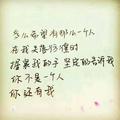 多么希望有那么一个人
在我走得彷徨时
握紧我的手 坚定的告诉我
你不是一个人
你还有我